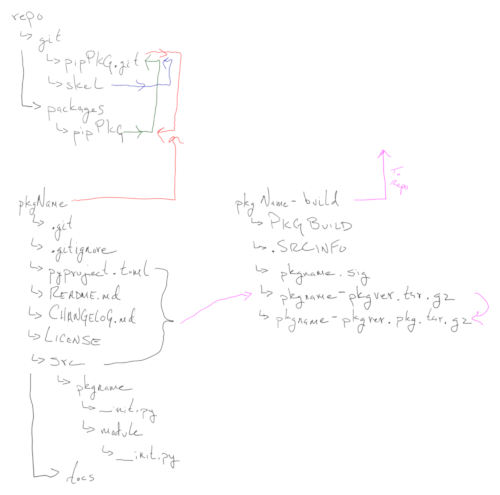 repo
↳ git
↳ pipPKG.git
↳ skel
↳ packages
↳ pipPKG
pkgName
↳ .git
↳ .gitignore
↳ pyproject.toml
↳ README.md
↳ CHANGELOG.md
↳ LICENSE
↳ src
↳ pkgname
↳ __init.py
↳ module
↳ __init.py
↳ docs
To Repo
pkgName-build
↳ PKGBUILD
↳ .SRCINFO
↳ pkgname.sig
↳ pkgname-pkgver.tar.gz
↳ pkgname-pkgver.pkg.tar.gz